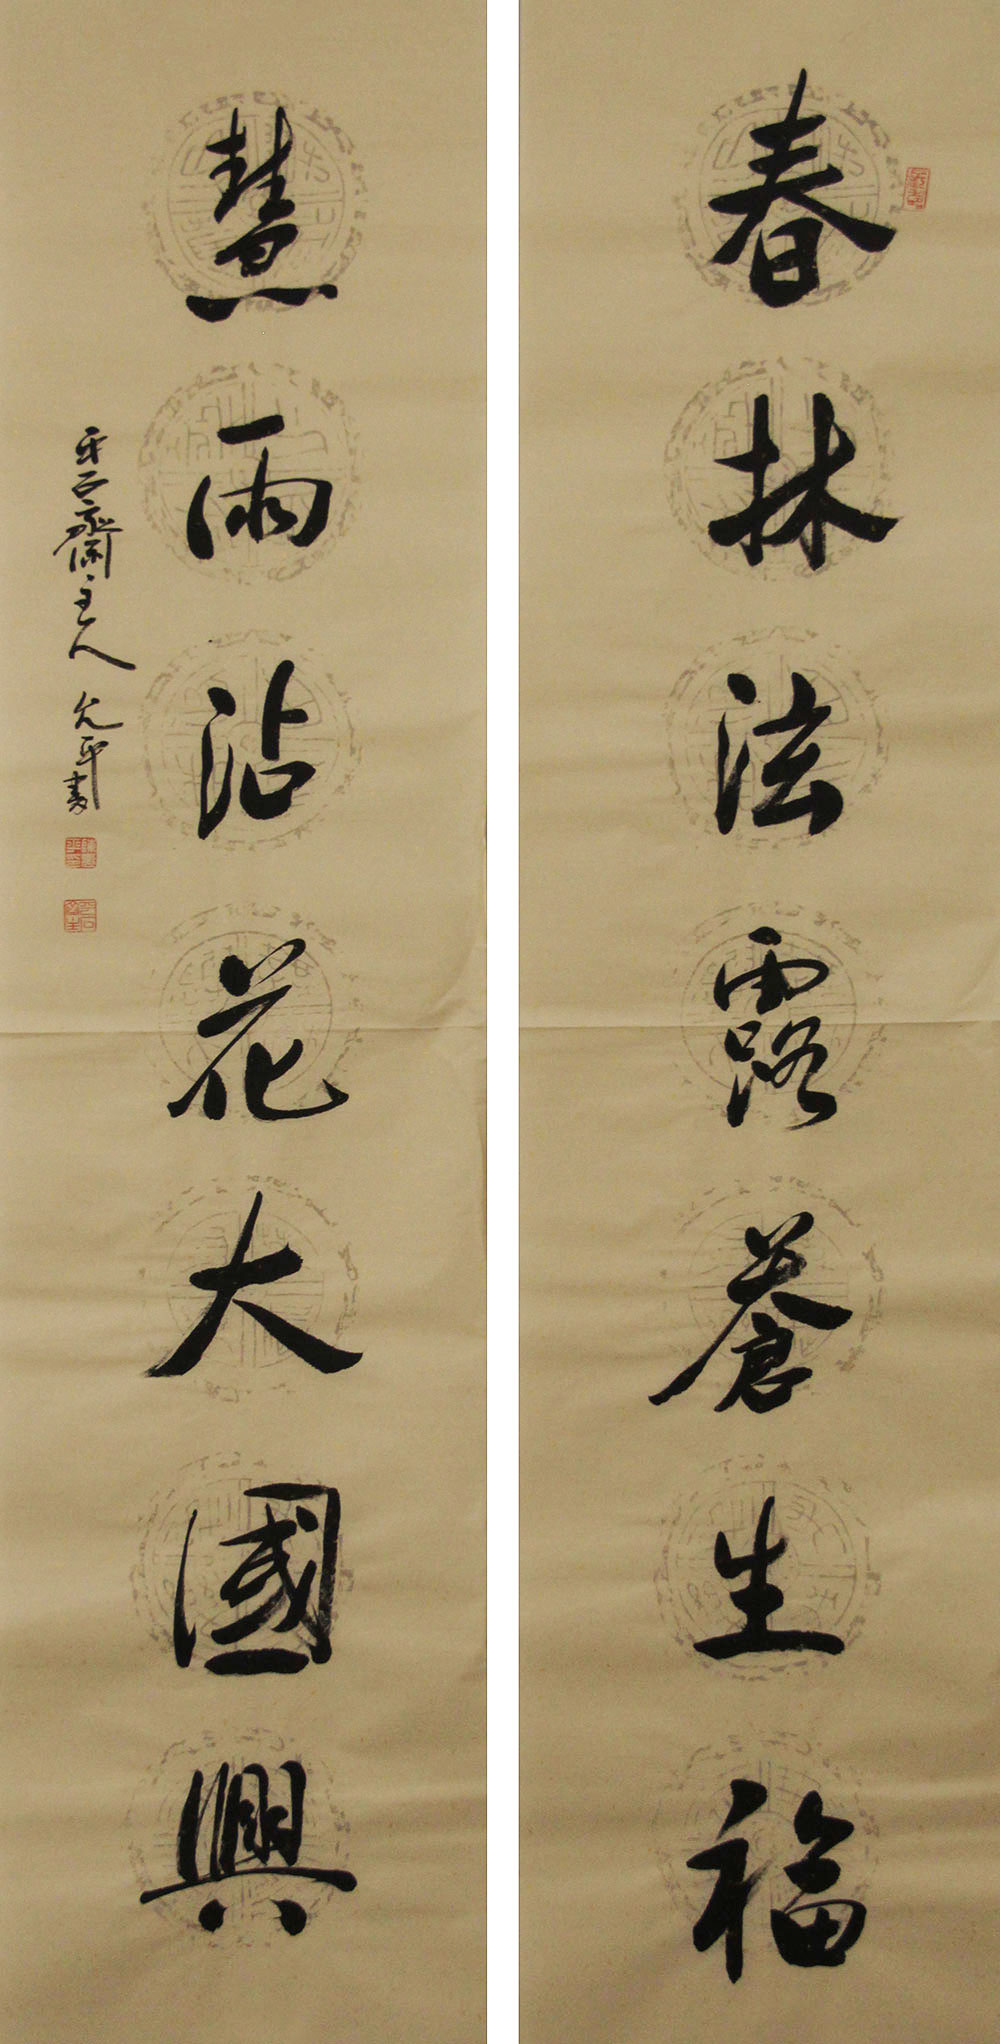 春林法露蒼生福
慧雨沾花大國興
齋主人 允平書